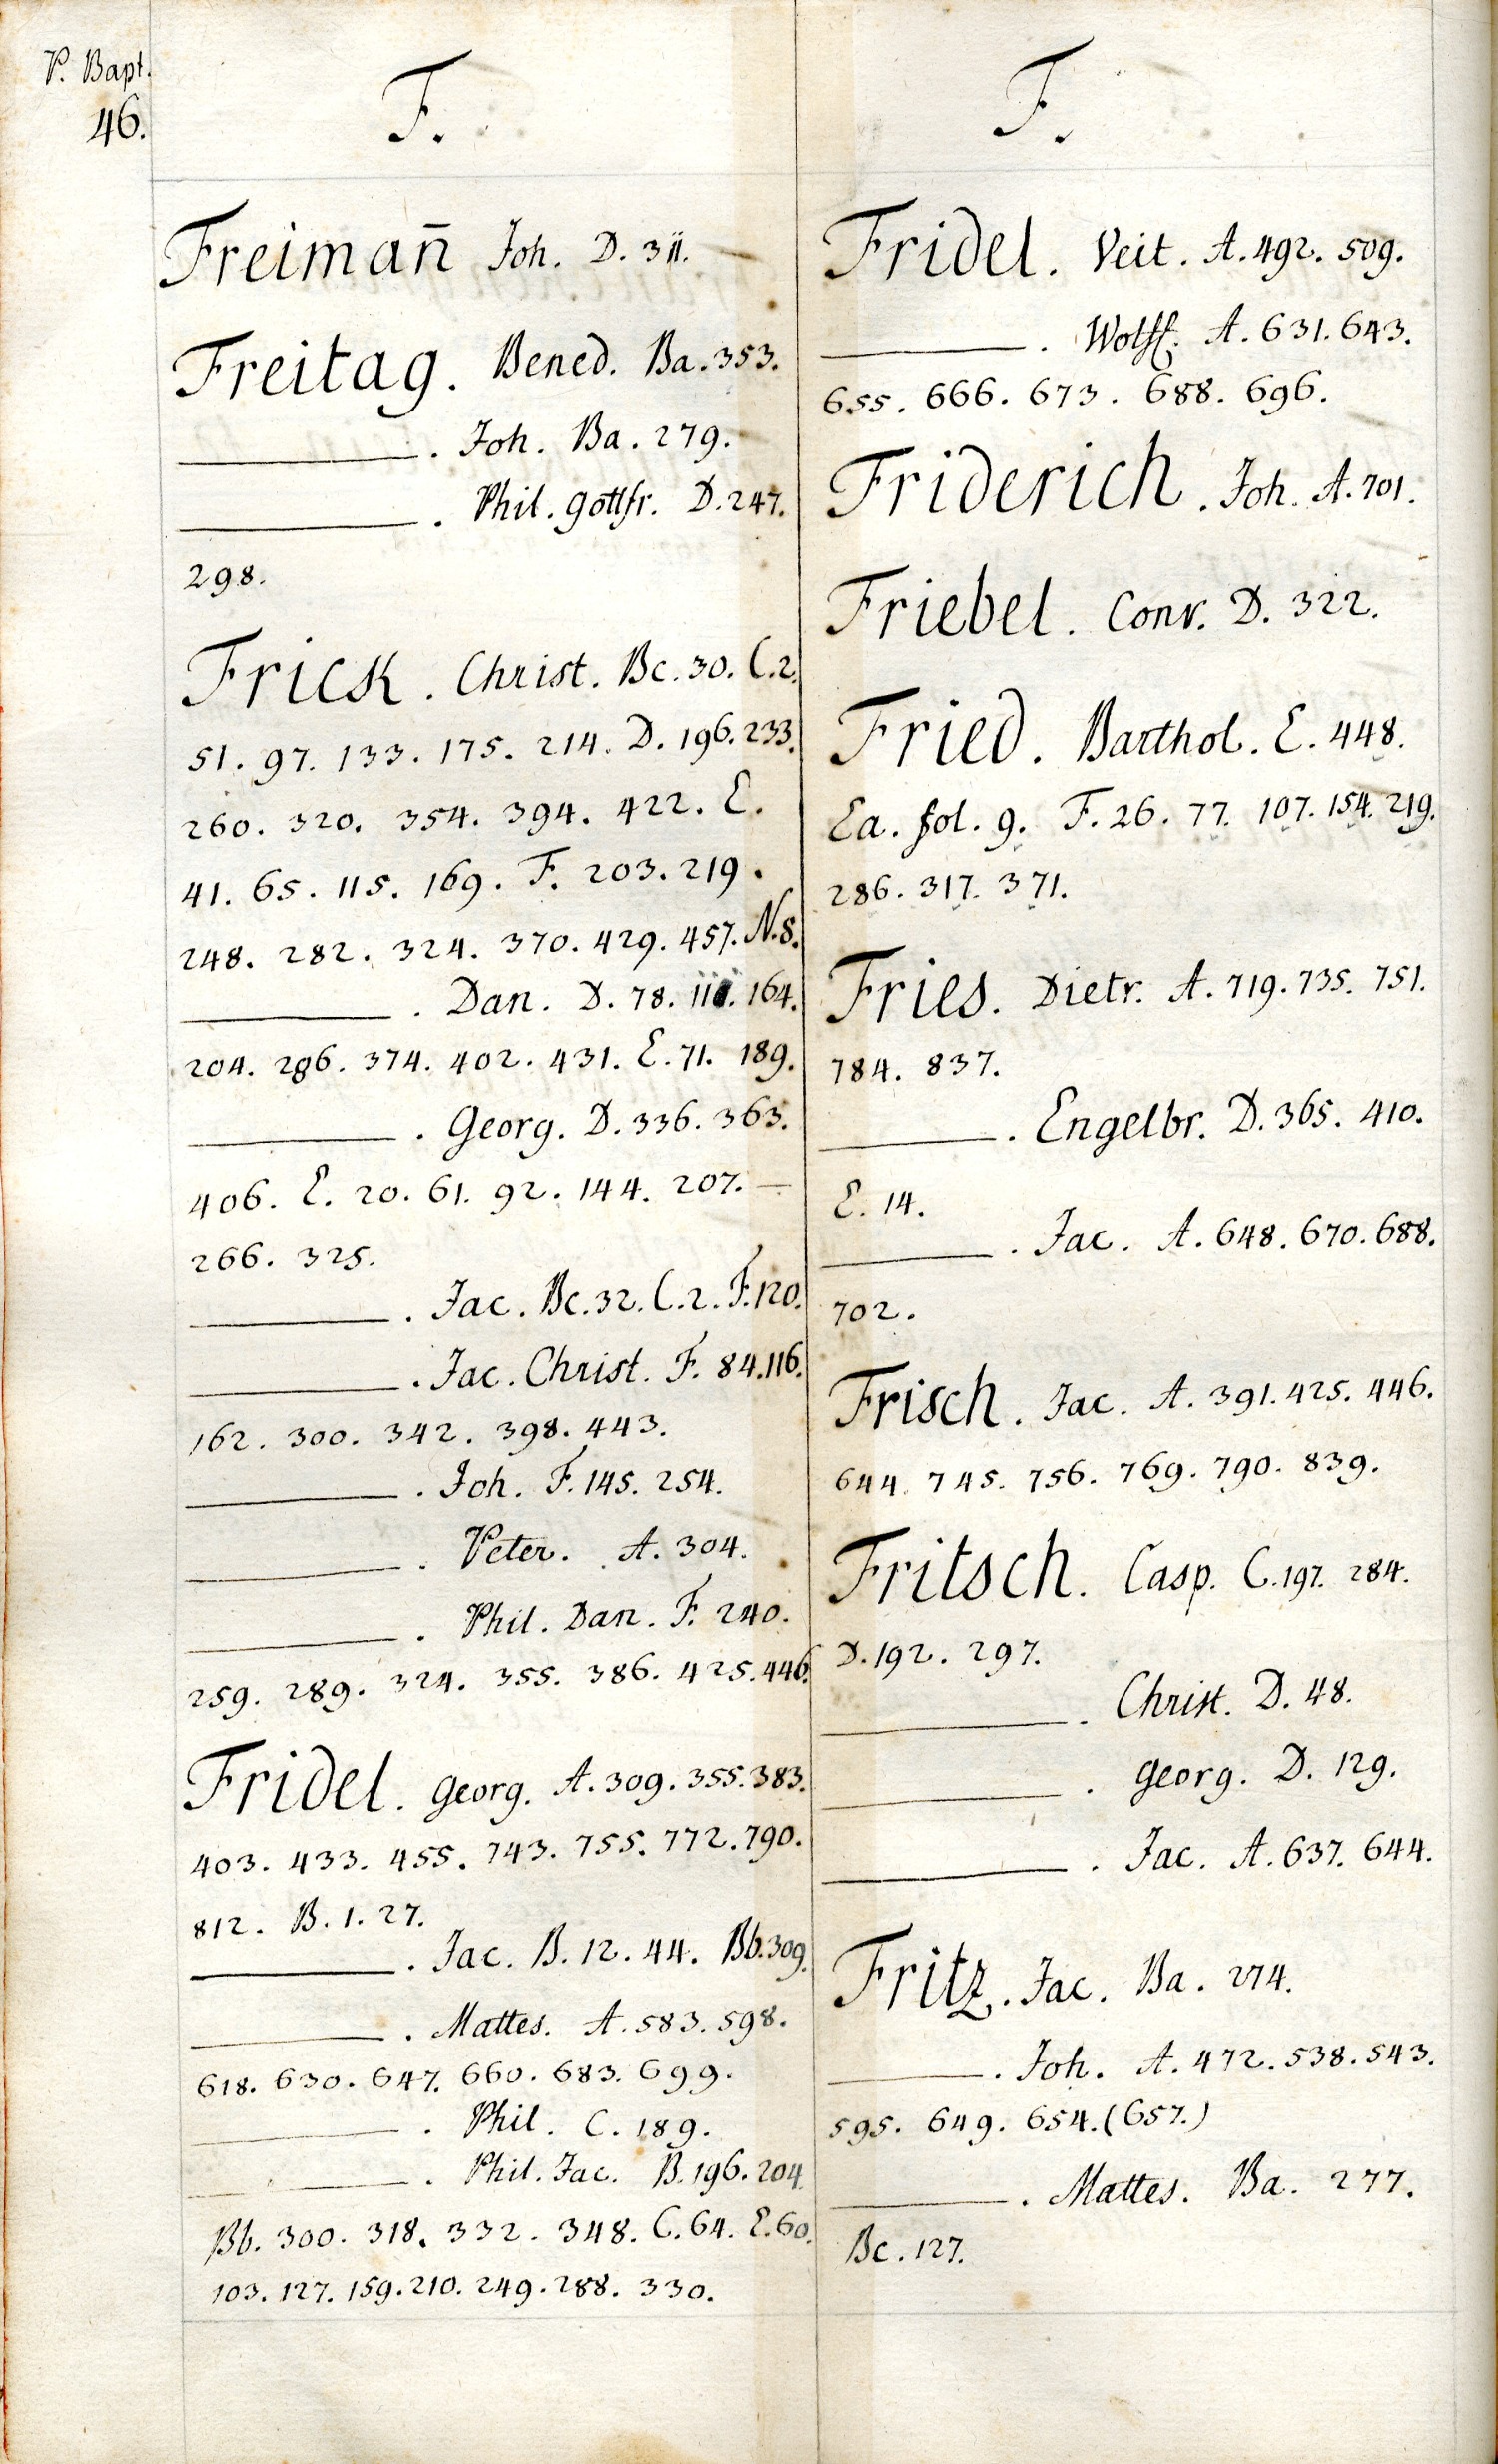 P. Bapt.
46.
F.
Freiman̄ Joh. D. 311.
Freitag. Bened. Ba. 353.
———. Joh. Ba. 279.
———. Phil. Gottfr. D. 247.
298.
Frick. Christ. Bc. 30. C. 2.
51. 97. 133. 175. 214. D. 196. 233.
260. 320. 354. 394. 422. E.
41. 65. 115. 169. F. 203. 219.
248. 282. 324. 370. 429. 457. N. 8.
———. Dan. D. 78. 164.
204. 286. 374. 402. 431. E. 71. 189.
———. Georg. D. 336. 363.
406. E. 20. 61. 92. 144. 207. —
266. 325.
———. Jac. Bc. 32. C. 2. F. 120.
———. Jac. Christ. F. 84. 116.
162. 300. 342. 398. 443.
———. Joh. F. 145. 254.
———. Peter. A. 304.
———. Phil. Dan. F. 240.
259. 289. 324. 355. 386. 425. 446.
Fridel. Georg. A. 309. 355. 383.
403. 433. 455. 743. 755. 772. 790.
812. B. 1. 27.
———. Jac. B. 12. 44. Bb. 309.
———. Mattes. A. 583. 598.
618. 630. 647. 660. 683. 699.
———. Phil. C. 189.
———. Phil. Jac. B. 196. 204
Bb. 300. 318. 332. 348. C. 64. E. 60.
103. 127. 159. 210. 249. 288. 330.
F.
Fridel. Veit. A. 492. 509.
———. Wolff. A. 631. 643.
655. 666. 673. 688. 696.
Friderich. Joh. A. 701.
Friebel. Conr. D. 322.
Fried. Barthol. E. 448.
Ea. fol. 9. F. 26. 77. 107. 154. 219.
286. 317. 371.
Fries. Dietr. A. 719. 735. 751.
784. 837.
———. Engelbr. D. 365. 410.
E. 14.
———. Jac. A. 648. 670. 688.
702.
Frisch. Jac. A. 391. 425. 446.
644. 745. 756. 769. 790. 839.
Fritsch. Casp. C. 197. 284.
D. 192. 297.
———. Christ. D. 48.
———. Georg. D. 129.
———. Jac. A. 637. 644.
Fritz. Jac. Ba. 274.
———. Joh. A. 472. 538. 543.
595. 649. 654. (657.)
———. Mattes. Ba. 277.
Bc. 127.